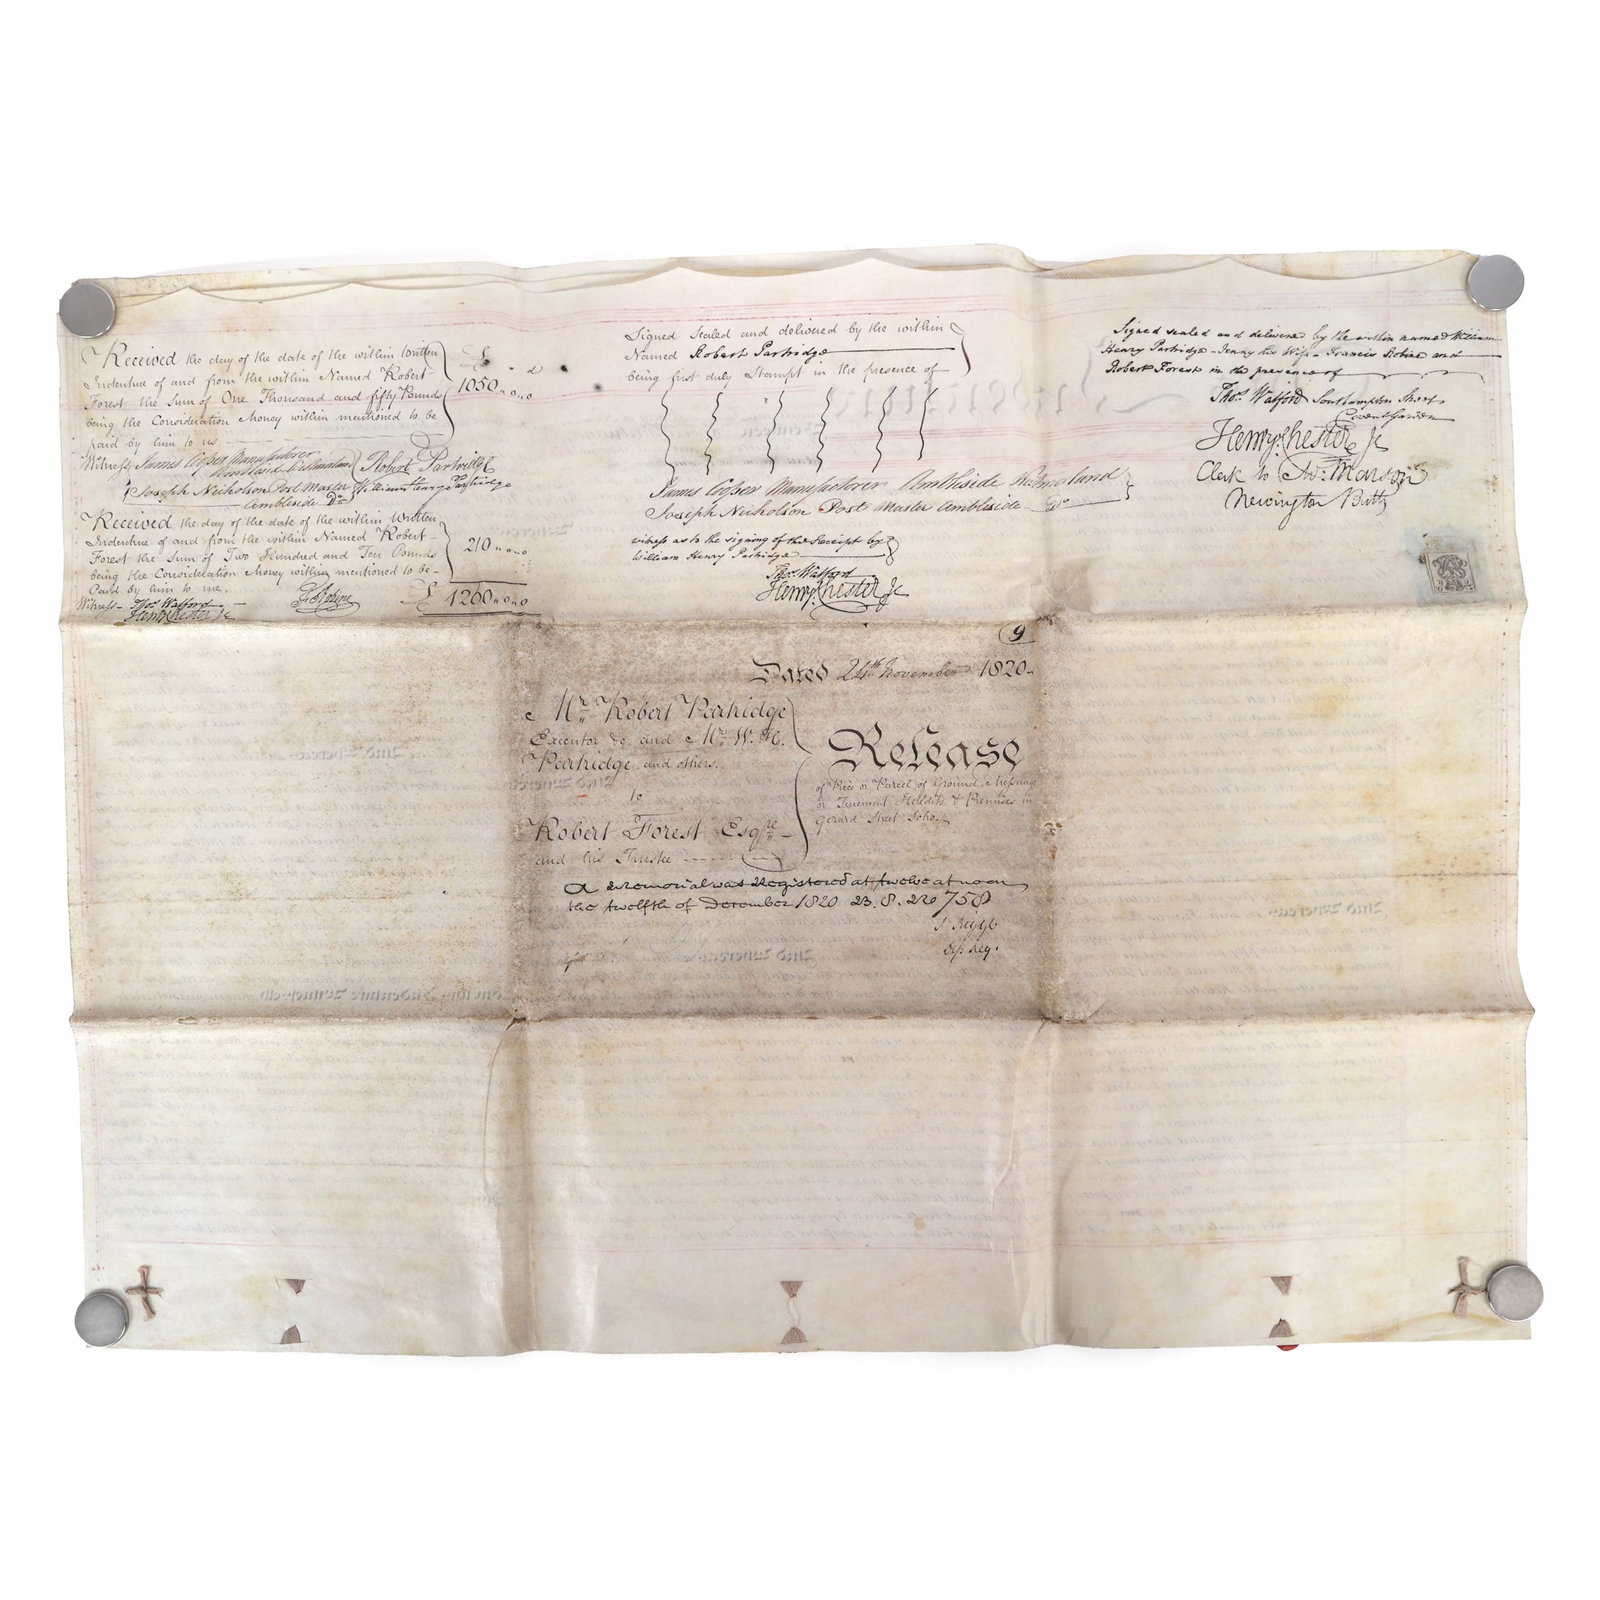 Received the day of the date of the within Written
Indenture of and from the within Named Robert
Forest the Sum of One Thousand and fifty Pounds
being the Consideration Money within mentioned to be
paid by him to us
£ s d
1050 " 0 " 0
Witness James Manufacturer
Ambleside Westmorland
Joseph Nicholson Post Master
Ambleside Do
Robert Partridge
William Henry Partridge
Received the day of the date of the within Written
Indenture of and from the within Named Robert
Forest the Sum of Two Hundred and Ten Pounds
being the Consideration Money within mentioned to be
Paid by him to me.
210 " 0 " 0
Witness Thos. Watford
Henry Chester Jr
£ 1260 " 0 " 0
Signed Sealed and delivered by the within
Named Robert Partridge
being first duly Stampt in the presence of
James Manufacturer Ambleside Westmorland
Joseph Nicholson Post Master Ambleside Do
witness as to the signing of the Receipt by
William Henry Partridge
Thos. Watford
Henry Chester Jr
Signed sealed and delivered by the within named William
Henry Partridge Jenny his Wife Francis Robine and
Robert Forest in the presence of
Thos. Watford Southampton Street
Covent Garden
Henry Chester Jr
Clerk to Mr. Marson
Newington Butts
9
Dated 24th November 1820
Mr. Robert Partridge
Executor &c and Mr. W. H.
Partridge and others.
to
Robert Forest Esqre
and his Trustee
Release
of Piece or Parcel of Ground Messuage
or Tenement Heredits & Premises in
Gerard Street Soho
A Memorial was Registered at twelve at noon
the twelfth of December 1820 B. 8. No 758
Dep Reg.